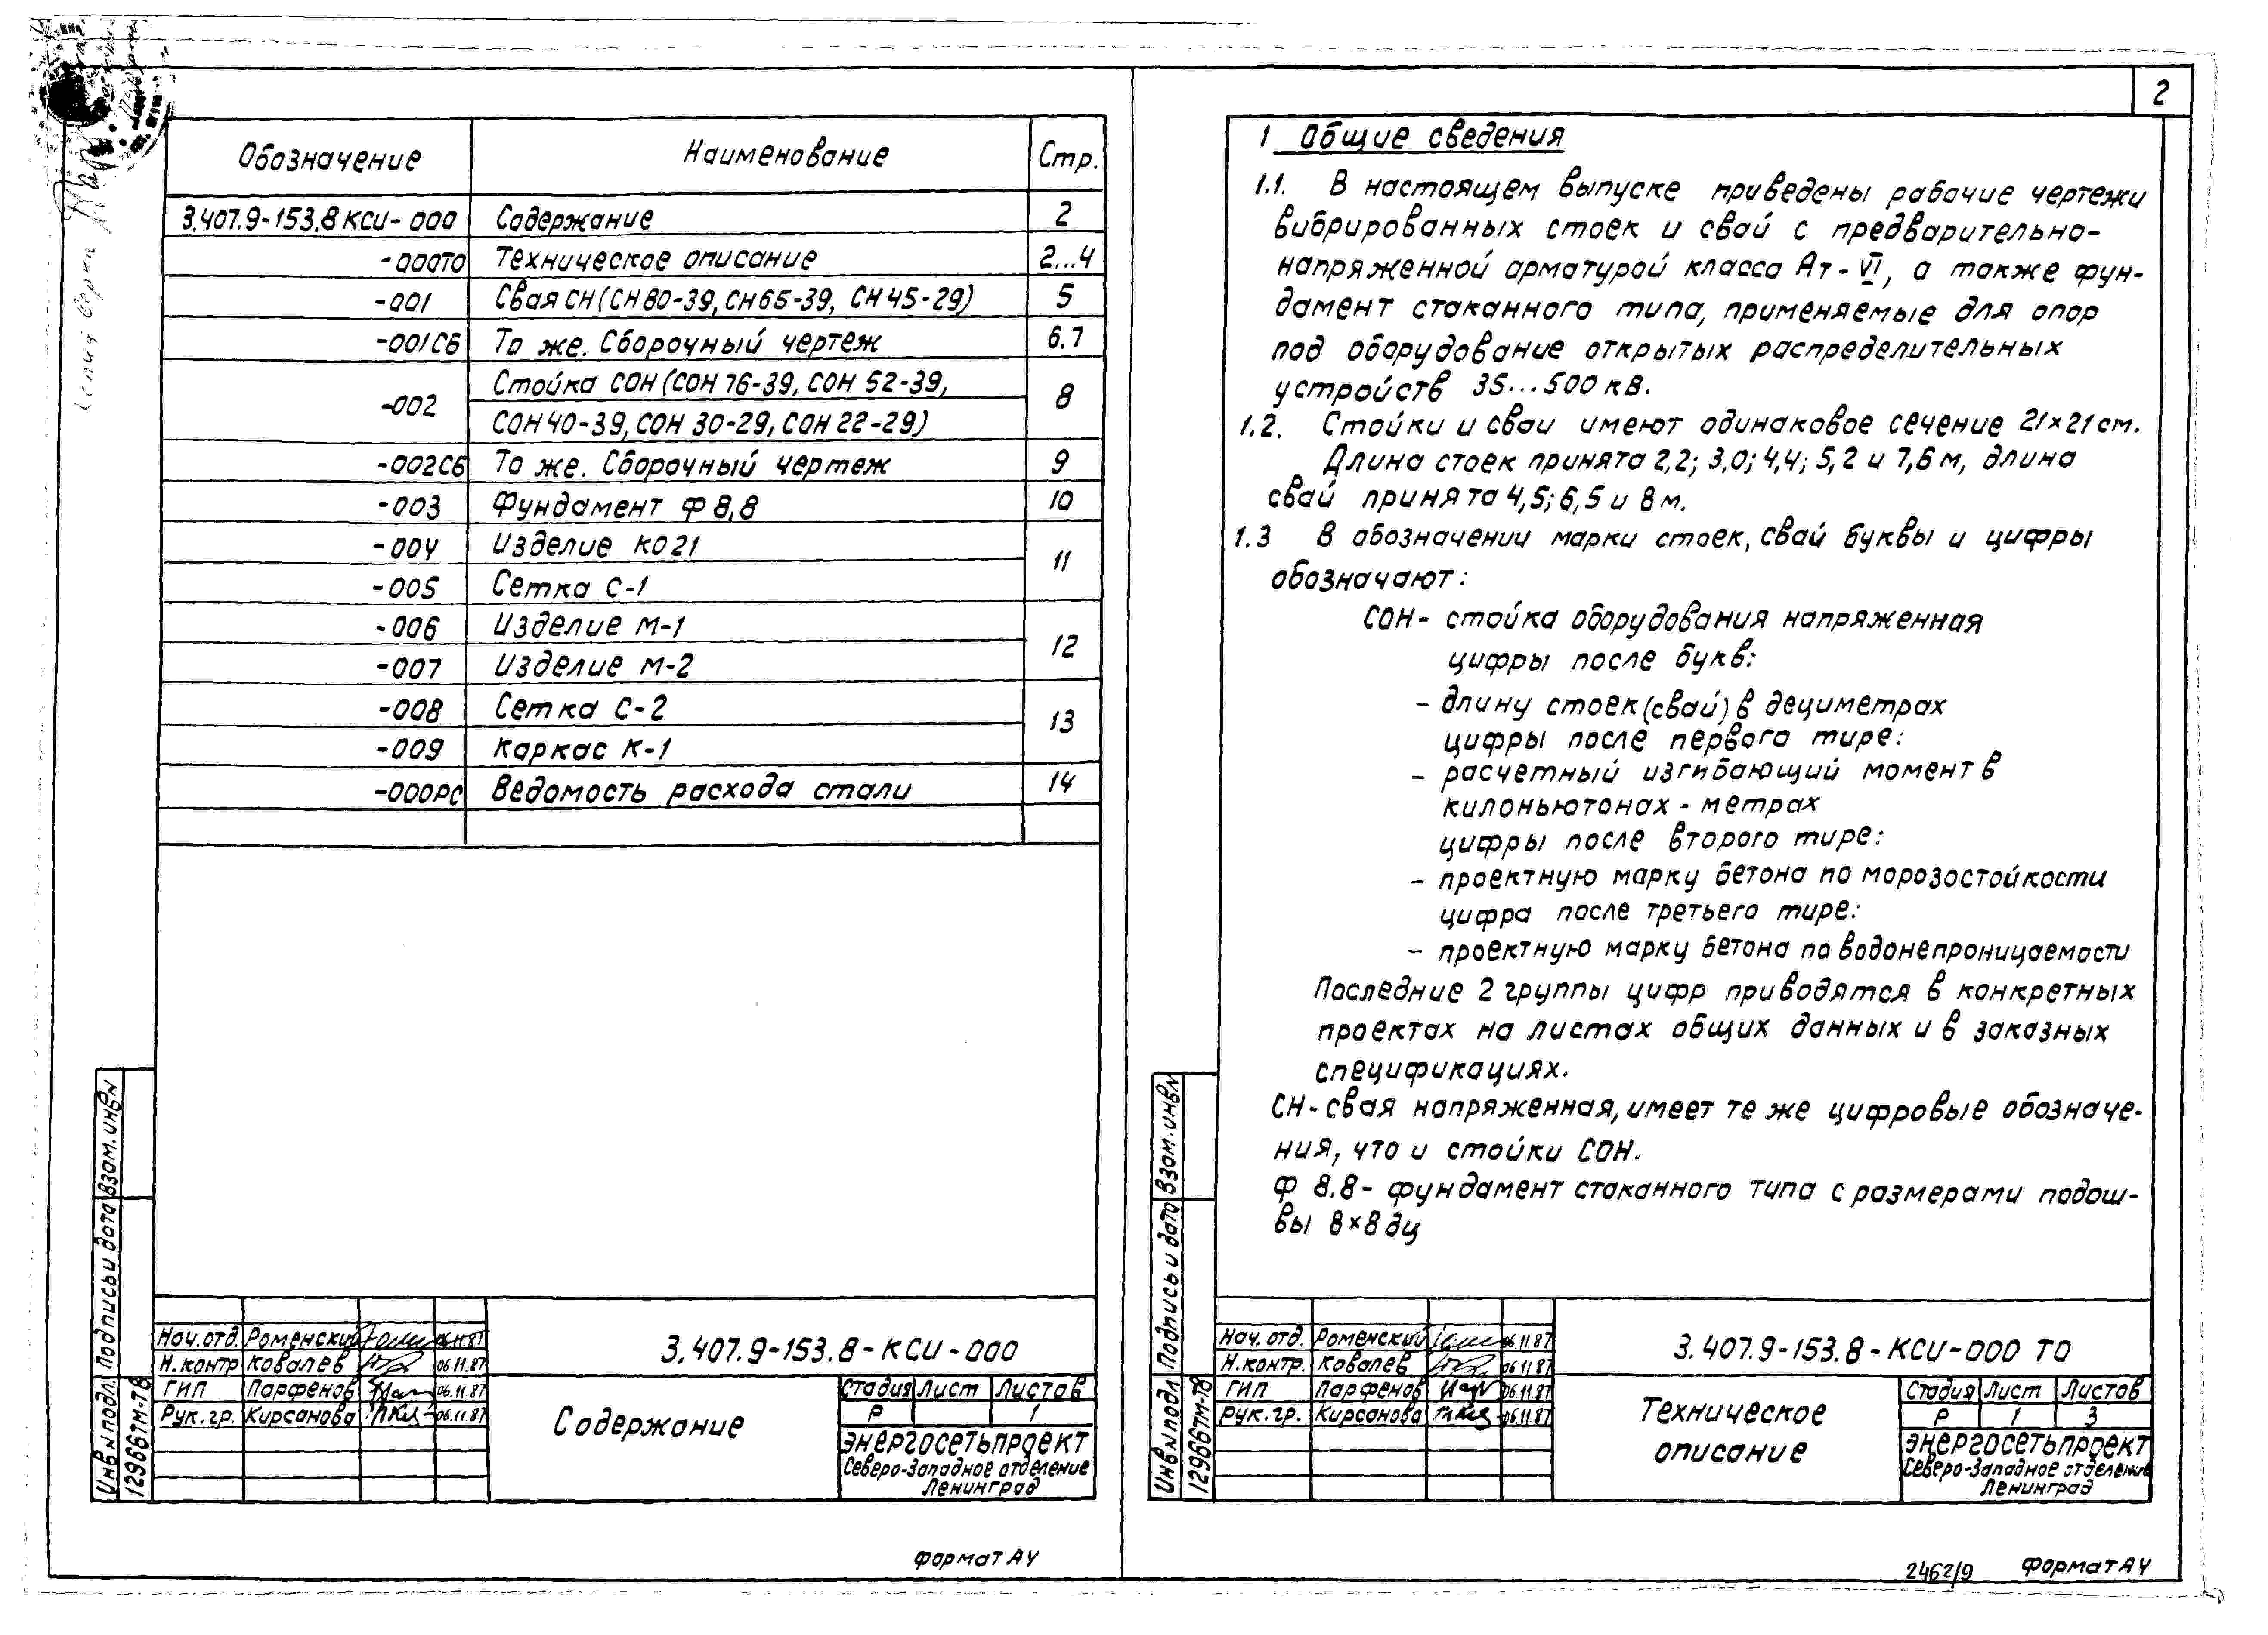 Обозначение Наименование Стр.
3.407.9-153.8 КСИ-000 Содержание 2
-000ТО Техническое описание 2...4
-001 Свая СН (СН 80-39, СН 65-39, СН 45-29) 5
-001СБ То же. Сборочный чертеж 6.7
-002 Стойка СОН (СОН 76-39, СОН 52-39, 8
СОН 40-39, СОН 30-29, СОН 22-29)
-002СБ То же. Сборочный чертеж 9
-003 Фундамент Ф 8,8 10
-004 Изделие КО21 11
-005 Сетка С-1
-006 Изделие М-1 12
-007 Изделие М-2
-008 Сетка С-2 13
-009 Каркас К-1
-000РС Ведомость расхода стали 14
Взам. инв N
Подпись и дата
Инв N подл.
12966тм-т8
Нач. отд. Роменский 06.11.87
Н. контр Ковалев 06.11.87
ГИП Парфенов 06.11.87
Рук. гр. Кирсанова 06.11.87
3.407.9-153.8-КСИ-000
Содержание
Стадия Лист Листов
Р 1
Энергосетьпроект
Северо-Западное отделение
Ленинград
Формат А4
2
1 Общие сведения
1.1. В настоящем выпуске приведены рабочие чертежи
вибрированных стоек и свай с предварительно-
напряженной арматурой класса Ат-VI, а также фун-
дамент стаканного типа, применяемые для опор
под оборудование открытых распределительных
устройств 35...500 кВ.
1.2. Стойки и сваи имеют одинаковое сечение 21×21 см.
Длина стоек принята 2,2; 3,0; 4,4; 5,2 и 7,6 м, длина
свай принята 4,5; 6,5 и 8 м.
1.3 В обозначении марки стоек, свай буквы и цифры
обозначают:
СОН - стойка оборудования напряженная
цифры после букв:
- длину стоек (свай) в дециметрах
цифры после первого тире:
- расчетный изгибающий момент в
килоньютонах - метрах
цифры после второго тире:
- проектную марку бетона по морозостойкости
цифра после третьего тире:
- проектную марку бетона по водонепроницаемости
Последние 2 группы цифр приводятся в конкретных
проектах на листах общих данных и в заказных
спецификациях.
СН - свая напряженная, имеет те же цифровые обозначе-
ния, что и стойки СОН.
Ф 8.8 - фундамент стаканного типа с размерами подош-
вы 8×8 дц
Взам. инв N
Подпись и дата
Инв N подл
12966тм-т8
Нач. отд. Роменский 06.11.87
Н. контр. Ковалев 06.11.87
ГИП Парфенов 06.11.87
Рук. гр. Кирсанова 06.11.87
3.407.9-153.8-КСИ-000 ТО
Техническое
описание
Стадия Лист Листов
Р 1 3
Энергосетьпроект
Северо-Западное отделение
Ленинград
2462/9 Формат А4